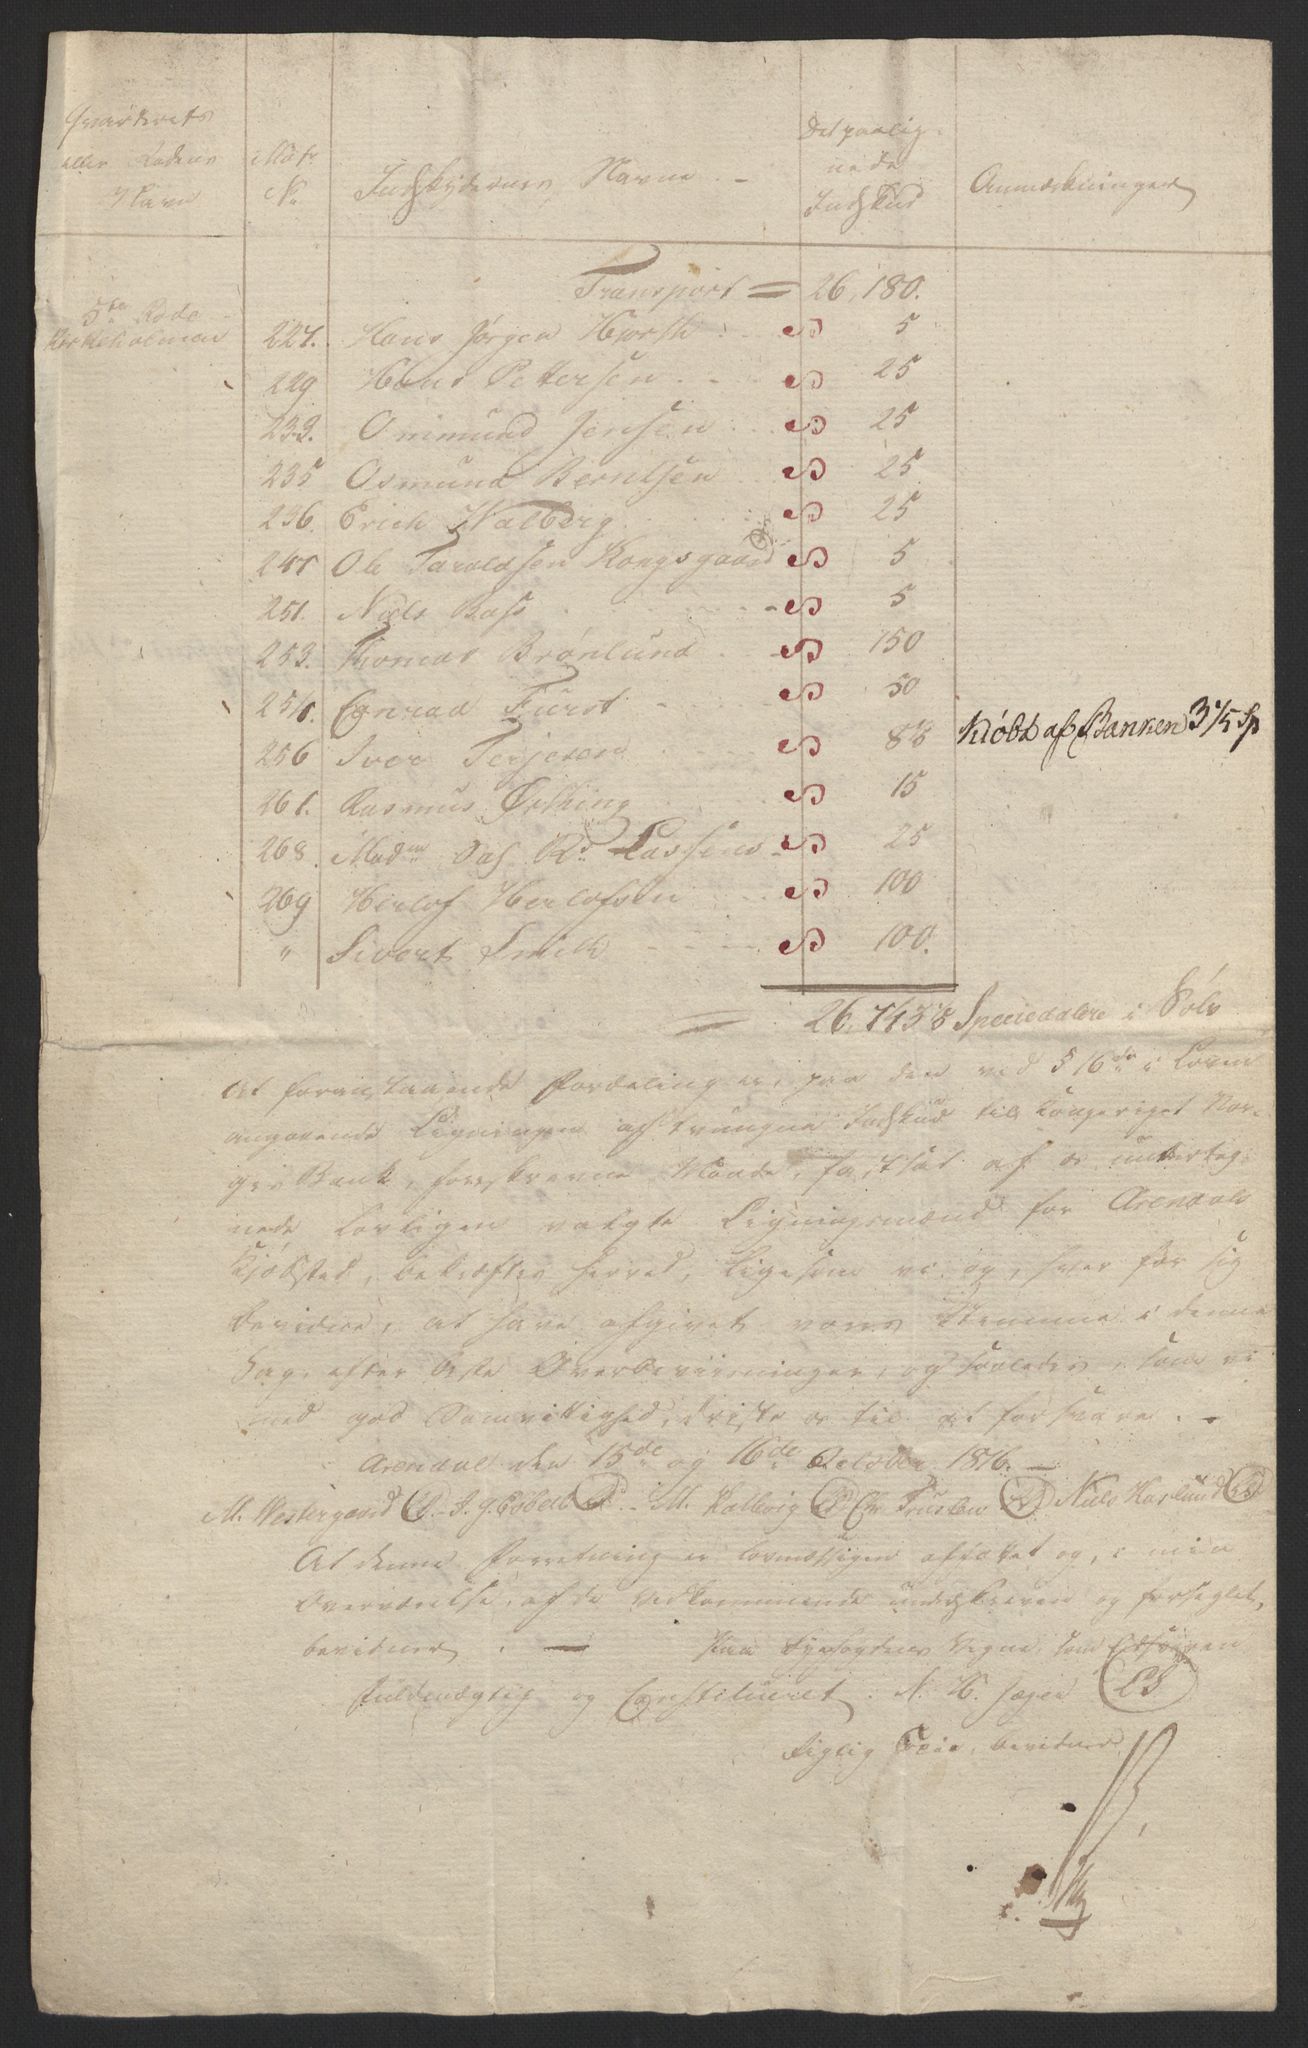 Qvarterets
eller Rodens
Navn
Matr.
No
Indskydernes Navne
Det paalig-
nede
Indskud
Anmærkninger
Transport = 26,180.
5te Rode
Kirkeholmen
227. Hans Jørgen 5
229 Hans Petersen 25
233. Ommund Jensen 25
235 Osmund Berntsen 25
236. Erich Kalberg 25
247 Ole Taraldsen Kongsgaard 5
251. Niels Bass 5
253. Thomas Brönlund 150
254. Conrad Fürst 50
256 Iver Terjesen 88 Kiöbt af Banken 3 1/5 Sp
261. Rasmus 15
268. Madm Lassens 25
269 Herlof Herlofsen 100
" Sivert Smith 100.
= 26, Speciedalere i Sölv
At foranstaaende Fordeling er, paa den ved § 16de i Loven
angaaende Ligningen af tvungne Indskud til Kongeriget Nor-
ges Bank, foreskrevne Maade, fastsat af os underteg-
nede lovligen valgte Ligningsmænd for Arendals
Kjöbsted, bekræftes herved, ligesom vi og, hver for sig
bevidne, at have afgivet vores Stemme i denne
Sag, efter beste Overbeviisninger, og saaledes, som vi
med god Samvittighed, driste os til at forsvare.
Arendal den 15de og 16de October 1816.
M. Westergaard J. G. Ebbell M. Kallevig Chr Niels Haslund
At denne Forretning er lovmæssigen afholdt og, i min
Overværelse, af de vedkommende underskreven og forseglet,
bevidner. Paa Byefogdens Vegne, som Edsvoren
Fuldmægtig og Constitueret. N. LS
Rigtig Copie, bevidner